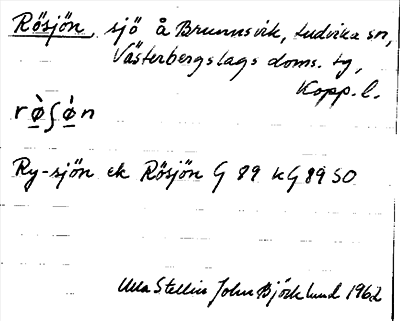 Rösjön, sjö å Brunnsvik, Ludvika sn,
Västerbergslags doms. tg,
Kopp. l.
rø̀ʃø̀n
Ry-sjön ek Rösjön G 89 kG 89 SO
Ulla Stellin John Björklund 1962